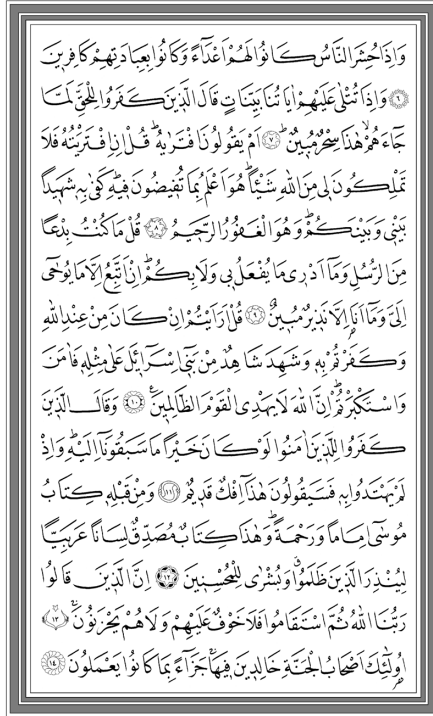 وَاِذَا حُشِرَ النَّاسُ كَانُوا لَهُمْ اَعْدَٓاءً وَكَانُوا بِعِبَادَتِهِمْ كَافِر۪ينَ
﴿٦﴾ وَاِذَا تُتْلٰى عَلَيْهِمْ اٰيَاتُنَا بَيِّنَاتٍ قَالَ الَّذ۪ينَ كَفَرُوا لِلْحَقِّ لَمَّا
جَٓاءَهُمْۙ هٰذَا سِحْرٌ مُب۪ينٌۜ ﴿٧﴾ اَمْ يَقُولُونَ افْتَرٰيهُۜ قُلْ اِنِ افْتَرَيْتُهُ فَلَا
تَمْلِكُونَ ل۪ي مِنَ اللّٰهِ شَيْـًٔاۜ هُوَ اَعْلَمُ بِمَا تُف۪يضُونَ ف۪يهِۜ كَفٰى بِه۪ شَه۪يدًا
بَيْن۪ي وَبَيْنَكُمْۜ وَهُوَ الْغَفُورُ الرَّح۪يمُ ﴿٨﴾ قُلْ مَا كُنْتُ بِدْعًا
مِنَ الرُّسُلِ وَمَٓا اَدْر۪ي مَا يُفْعَلُ ب۪ي وَلَا بِكُمْۜ اِنْ اَتَّبِعُ اِلَّا مَا يُوحٰٓى
اِلَيَّ وَمَٓا اَنَا۬ اِلَّا نَذ۪يرٌ مُب۪ينٌ ﴿٩﴾ قُلْ اَرَاَيْتُمْ اِنْ كَانَ مِنْ عِنْدِ اللّٰهِ
وَكَفَرْتُمْ بِه۪ وَشَهِدَ شَاهِدٌ مِنْ بَن۪ٓي اِسْرَٓائ۪لَ عَلٰى مِثْلِه۪ فَاٰمَنَ
وَاسْتَكْبَرْتُمْۜ اِنَّ اللّٰهَ لَا يَهْدِي الْقَوْمَ الظَّالِم۪ينَ۟ ﴿١٠﴾ وَقَالَ الَّذ۪ينَ
كَفَرُوا لِلَّذ۪ينَ اٰمَنُوا لَوْ كَانَ خَيْرًا مَا سَبَقُونَٓا اِلَيْهِۜ وَاِذْ
لَمْ يَهْتَدُوا بِه۪ فَسَيَقُولُونَ هٰذَٓا اِفْكٌ قَد۪يمٌ ﴿١١﴾ وَمِنْ قَبْلِه۪ كِتَابُ
مُوسٰٓى اِمَامًا وَرَحْمَةًۜ وَهٰذَا كِتَابٌ مُصَدِّقٌ لِسَانًا عَرَبِيًّا
لِيُنْذِرَ الَّذ۪ينَ ظَلَمُواۗ وَبُشْرٰى لِلْمُحْسِن۪ينَ ﴿١٢﴾ اِنَّ الَّذ۪ينَ قَالُوا
رَبُّنَا اللّٰهُ ثُمَّ اسْتَقَامُوا فَلَا خَوْفٌ عَلَيْهِمْ وَلَا هُمْ يَحْزَنُونَۚ ﴿١٣﴾
اُو۬لٰٓئِكَ اَصْحَابُ الْجَنَّةِ خَالِد۪ينَ ف۪يهَاۚ جَزَٓاءً بِمَا كَانُوا يَعْمَلُونَ ﴿١٤﴾